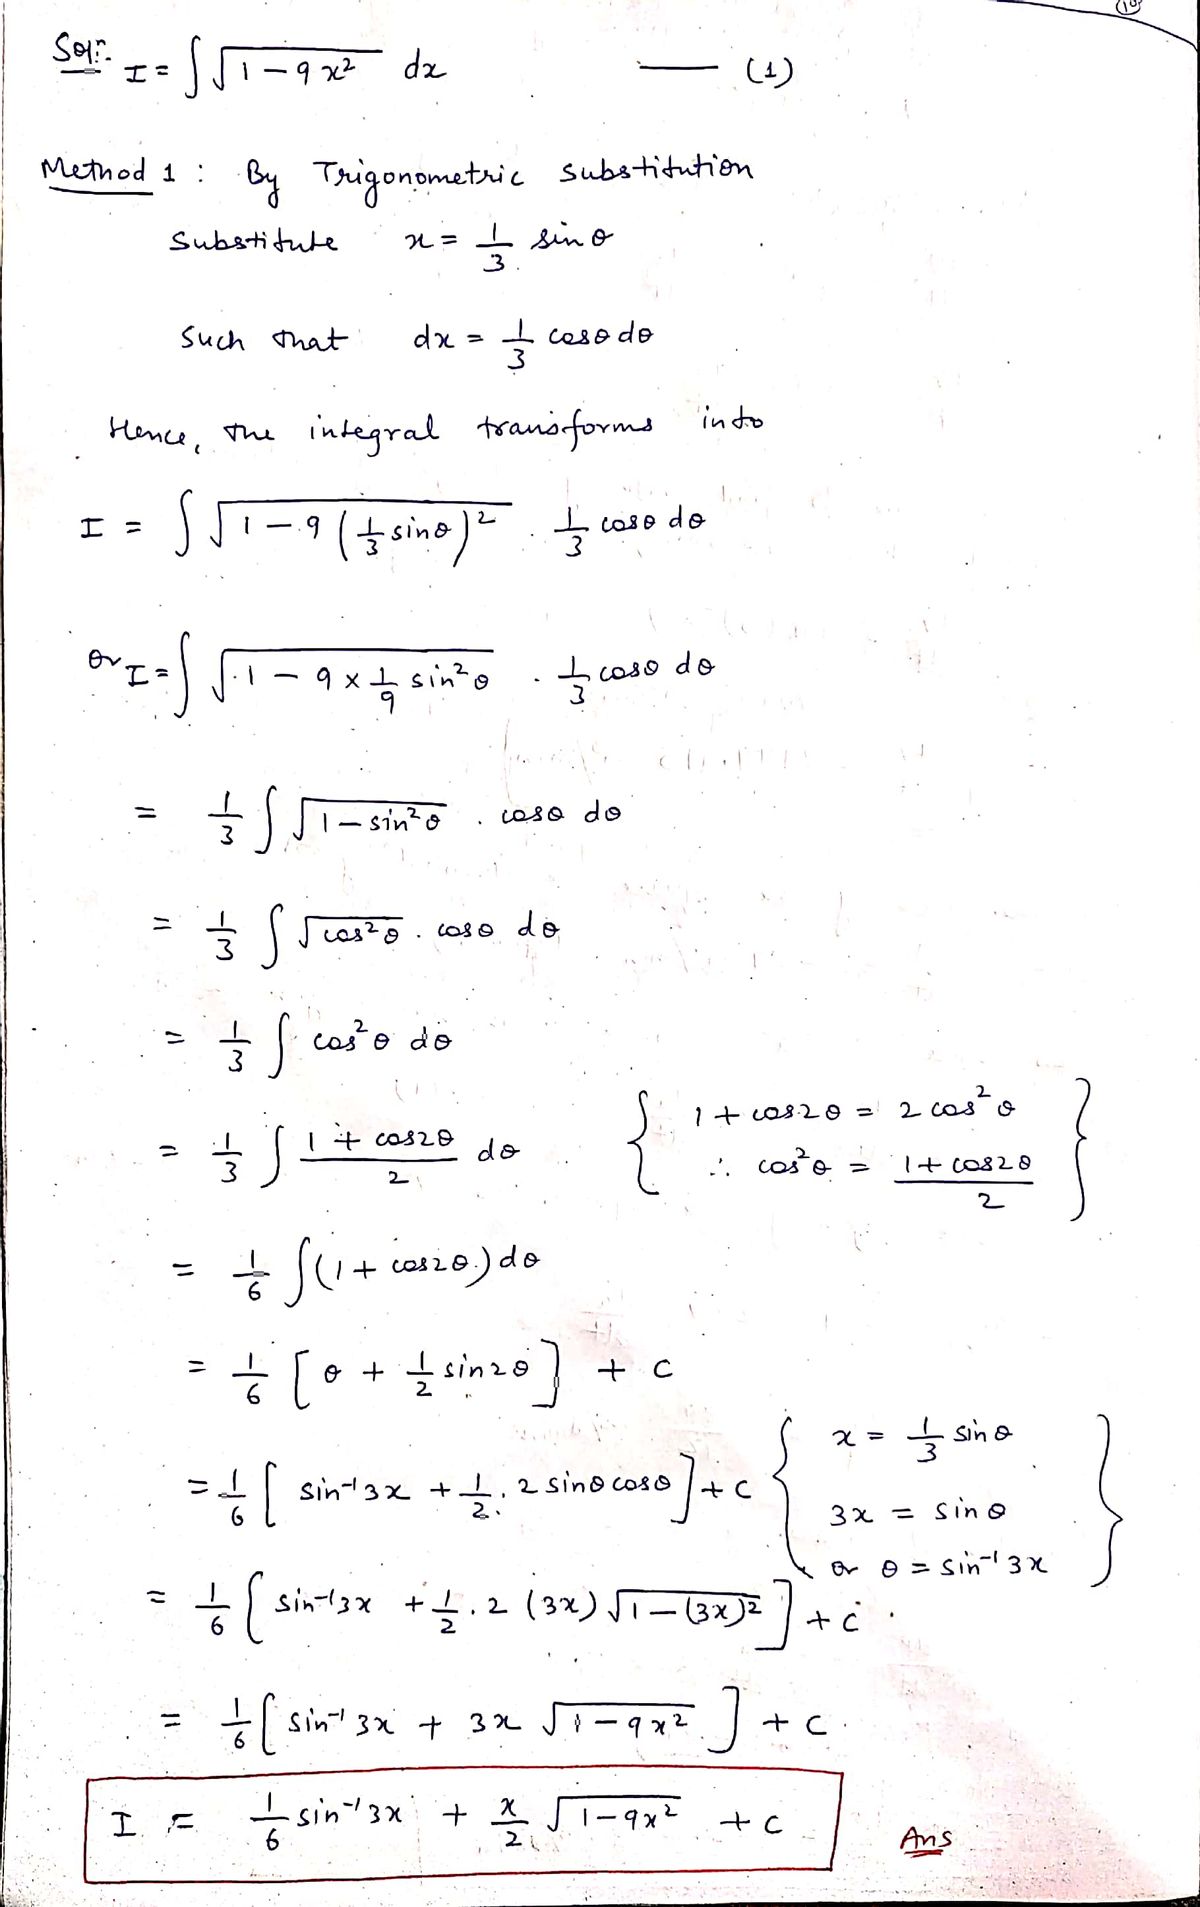 10
Soln. I = ∫ √(1 - 9x²) dx —— (1)
Method 1 : By Trigonometric substitution
Substitute x = 1/3 sin θ
Such that dx = 1/3 cos θ dθ
Hence, the integral transforms into
I = ∫ √(1 - 9 (1/3 sin θ)²) . 1/3 cos θ dθ
or I = ∫ √(1 - 9 × 1/9 sin² θ) . 1/3 cos θ dθ
= 1/3 ∫ √(1 - sin² θ) . cos θ dθ
= 1/3 ∫ √(cos² θ) . cos θ dθ
= 1/3 ∫ cos² θ dθ
= 1/3 ∫ (1 + cos 2θ)/2 dθ { 1 + cos 2θ = 2 cos² θ
∴ cos² θ = (1 + cos 2θ)/2 }
= 1/6 ∫ (1 + cos 2θ) dθ
= 1/6 [ θ + 1/2 sin 2θ ] + c
= 1/6 [ sin⁻¹ 3x + 1/2 . 2 sin θ cos θ ] + c { x = 1/3 sin θ
3x = sin θ
or θ = sin⁻¹ 3x }
= 1/6 [ sin⁻¹ 3x + 1/2 . 2 (3x) √(1 - (3x)²) ] + c
= 1/6 [ sin⁻¹ 3x + 3x √(1 - 9x²) ] + c
I = 1/6 sin⁻¹ 3x + x/2 √(1 - 9x²) + c Ans